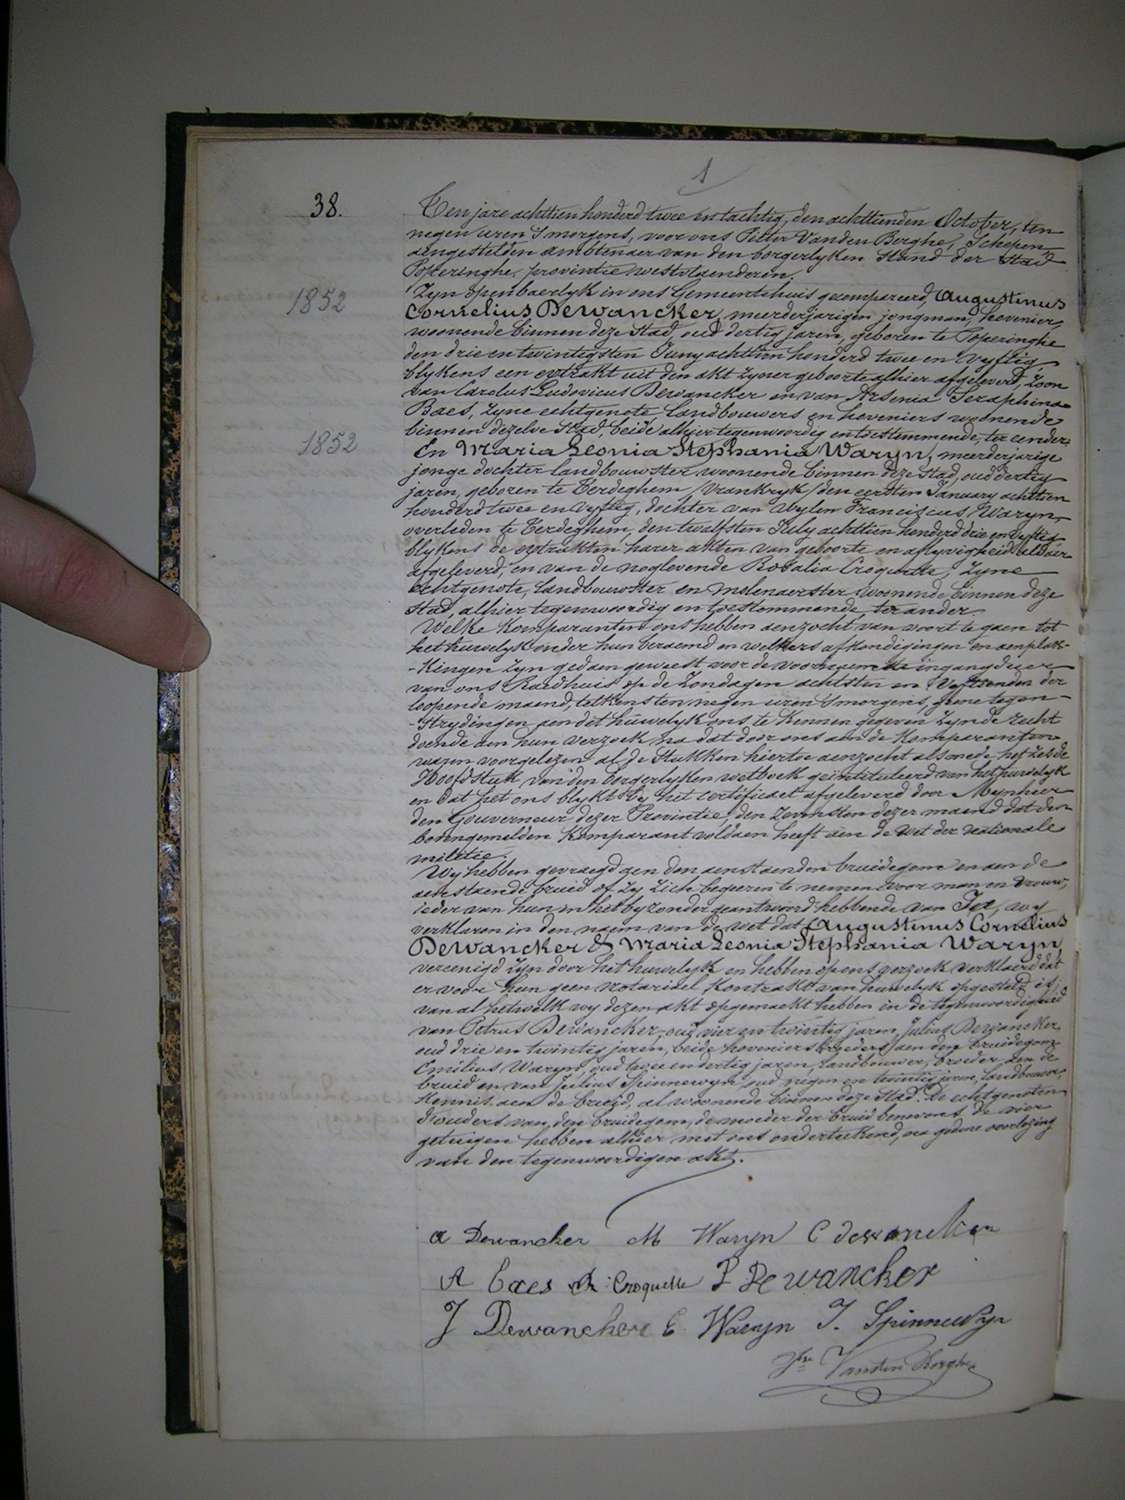 1
38.
Ten jare achttien honderd twee en tachtig, den achttienden October, ten
negen uren 's morgens, voor ons Pieter Vanden Berghe, Schepen
aengestelden ambtenaer van den borgerlyken Stand der Stad
Poperinghe, provintie westvlaenderen.
Zyn openbaerlyk in ons Gemeentehuis gecompareerd, Augustinus
1852
Cornelius Dewancker, meerderjarigen jongman, hovenier,
woonende binnen deze Stad, oud dertig jaren, geboren te Poperinghe
den drie en twintigsten Juny achttien honderd twee en vyftig
blykens een extrakt uit den akt zyner geboorte alhier afgeleverd, zoon
van Carolus Ludovicus Dewancker en van Arsenia Seraphina
Baes, zyne echtgenote landbouwers en hoveniers woonende
binnen dezelve Stad, beide alhier tegenwoordig en toestemmende, ter eender
1852
En Maria Leonia Stephania Waryn, meerderjarige
jonge dochter landbouwster, woonende binnen deze Stad, oud dertig
jaren, geboren te Terdeghem /Vrankryk/ den eersten January achttien
honderd twee en vyftig, dochter van wylen Franciscus Waryn,
overleden te Terdeghem, den twalfsten July achttien honderd drie en vyftig
blykens de extrakten harer akten van geboorte en aflyvigheid alhier
afgeleverd, en van de noglevende Rosalia Croquette, zyne
echtgenote, landbouwster en molenaerster woonende binnen deze
Stad alhier tegenwoordig en toestemmende, ter ander.
Welke Komparanten ons hebben aenzocht van voort te gaen tot
het huwelyk onder hun beraemd en welkers afkondigingen en aenplak-
-kingen zyn gedaen geweest voor de voornaemste ingangdeur
van ons Raedhuis op de Zondagen achtsten en vyftienden der
loopende maend, telkens ten negen uren 's morgens, geene tegen-
-strydingen aen dit huwelyk ons te kennen gegeven zynde recht
doende aen hun verzoek na dat door ons aen de Komparanten
waren voorgelezen al de Stukken hiertoe aenzocht alsmede het zesde
Hoofdstuk van den borgerlyken wetboek geintituleerd van het huwelyk
en dat het ons blykt by het certificaet afgeleverd door Mynheer
den Gouverneur dezer Provintie, den zevensten dezer maend dat den
bovengemelden Komparant voldaen heeft aen de wet der nationale
militie,
Wy hebben gevraegd aen den aenstaenden bruidegom en aen de
aenstaende bruid of zy zich begeeren te nemen voor man en vrouw,
ieder van hun in het byzonder geantwoord hebbende van Ja, wy
verklaren in den naem van de wet dat Augustinus Cornelius
Dewancker & Maria Leonia Stephania Waryn,
vereenigd zyn door het huwelyk en hebben op ons verzoek verklaerd dat
er voor hun geen notarieel kontrakt van huwelyk opgesteld is,
van al hetwelk wy dezen akt opgemaekt hebben in de tegenwoordigheid
van Petrus Dewancker, oud vier en twintig jaren, Julius Dewancker
oud drie en twintig jaren, beide hoveniers broeders aen den bruidegom
Emilius Waryn, oud twee en dertig jaren, landbouwer, broeder aen de
bruid en van Julius Spinnewyn, oud negen en twintig jaren, landbouwer
kennis aen de bruid, al woonende binnen deze Stad. De echtgenoten
d'ouders van den bruidegom, de moeder der bruid benevens de vier
getuigen hebben alhier met ons onderteekend, na gedane voorlezing
van den tegenwoordigen akt.
A Dewancker M Waryn C dewancker
A Baes R Croquette P Dewancker
J Dewancker E Waryn J. Spinnewyn
Vanden Berghe